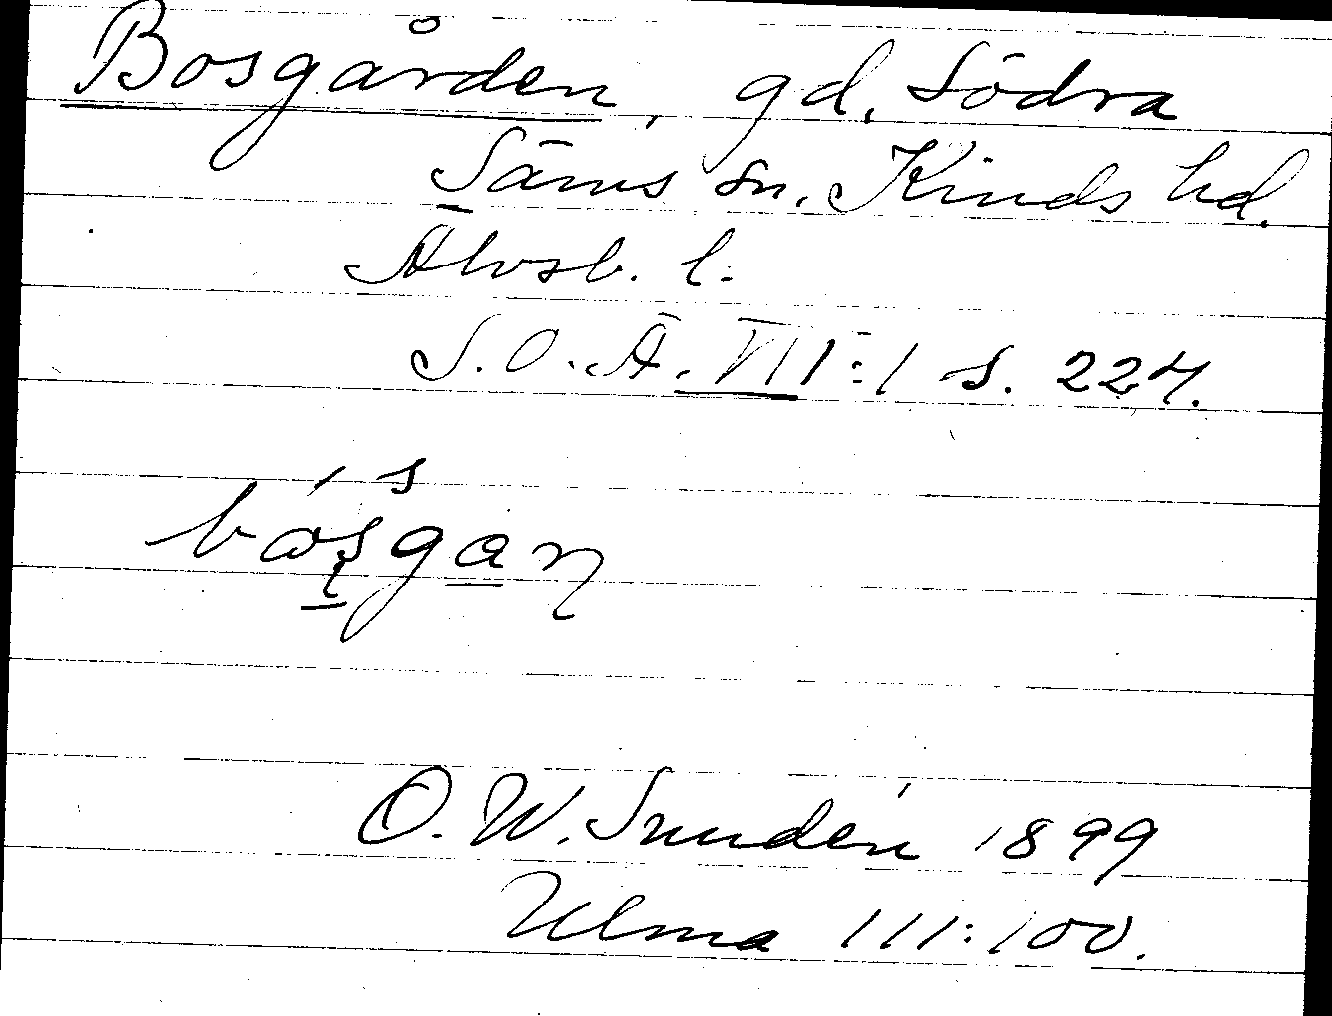 Bosgården, gd. Södra
Säms sn. Kinds hd.
Älvsb. l.
S.O.Ä. VII:1 s. 227.
O. W. Sundén 1899
Ulma 111:100.